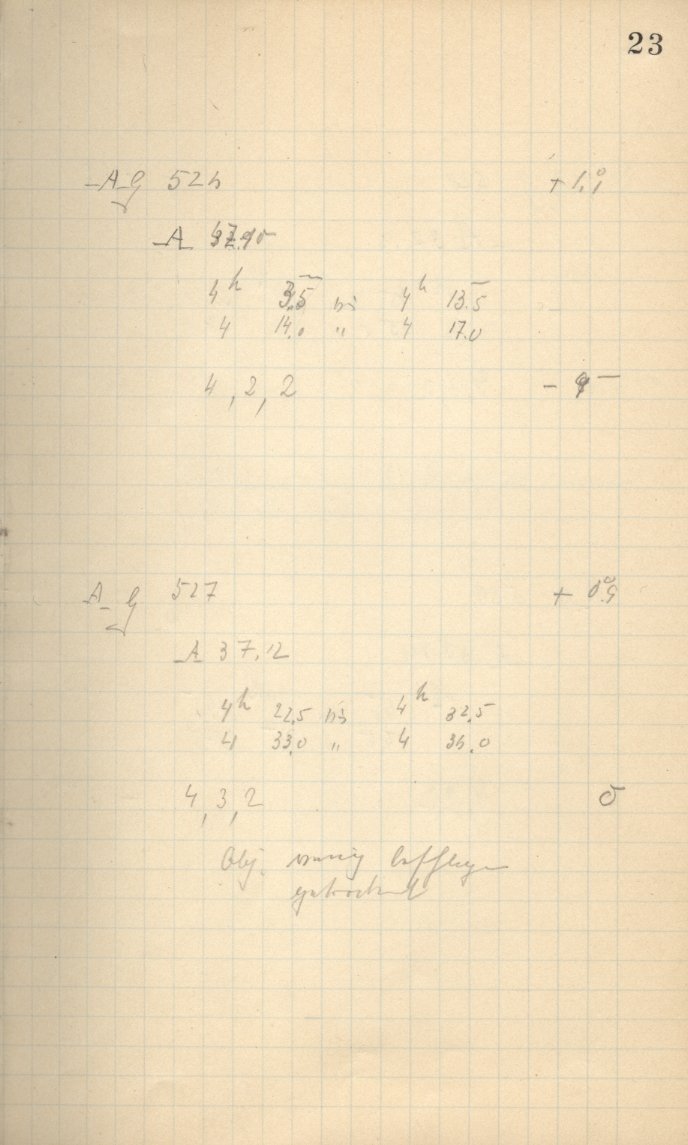 23
A G 526 + 1°,1
A
4h 3m,5 bis 4h 13m,5
4 14,0 " 4 17,0
4, 2, 2
A G 527 + 0°,9
A 37,12
4h 22,5 bis 4h 32,5
4 33,0 " 4 36,0
4, 3, 2 0
Obj. wenig beschlagen
getrocknet